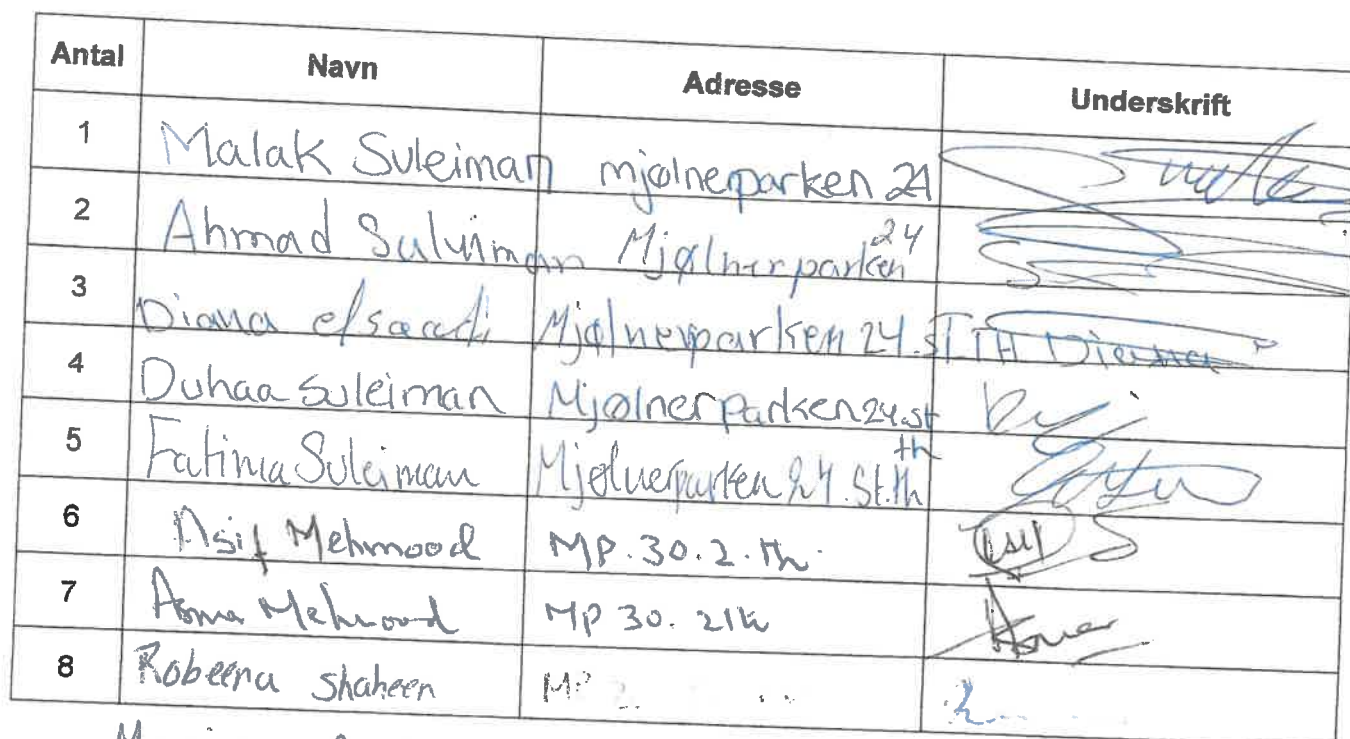 Antal Navn Adresse Underskrift
1 Malak Suleiman mjølnerparken 24
2 Ahmad Suluiman Mjølnerparken 24
3 Diana elsaadi Mjølnerparken 24. ST TH Diana
4 Duhaa Suleiman Mjølnerparken 24. st th
5 Fatima Suleiman Mjølnerparken 24. St. th
6 Asif Mehmood MP. 30. 2. th. Asif
7 Asma Mehmood MP 30. 2 th Asma
8 Robeena Shaheen MP